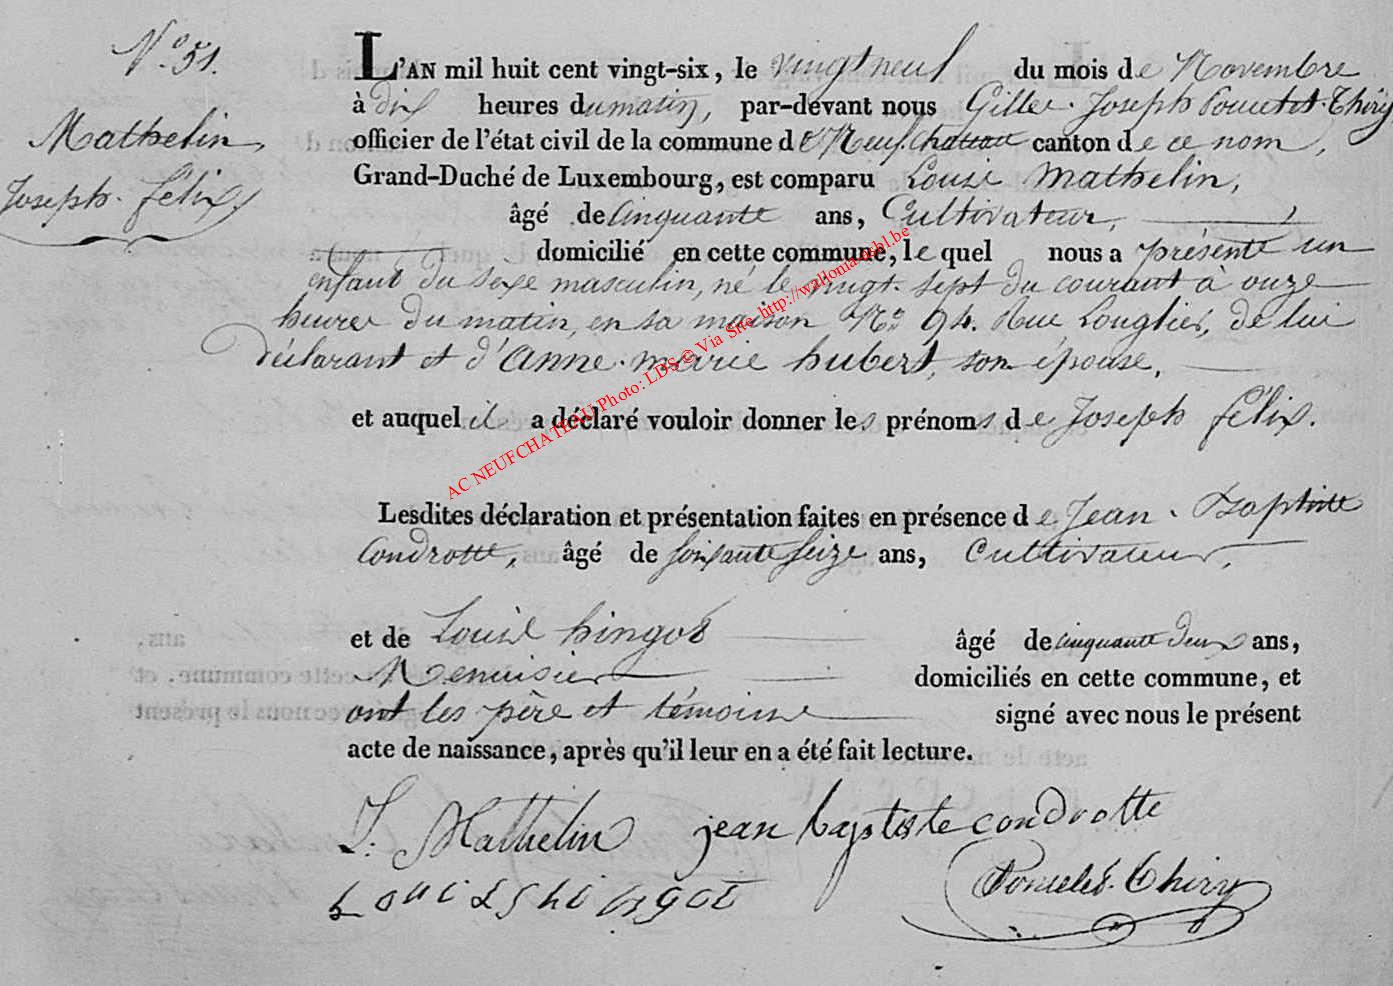 N.° 51.
Mathelin,
Joseph. félix,
L'AN mil huit cent vingt-six, le vingt neuf du mois de Novembre
à dix heures du matin, par-devant nous Gilles. Joseph Poncelet. Thiry
officier de l'état civil de la commune de Neufchateau canton de ce nom,
Grand-Duché de Luxembourg, est comparu Louis Mathelin,
âgé de cinquante ans, Cultivateur,
domicilié en cette commune, le quel nous a présenté un
enfant du sexe masculin, né le vingt. sept du courant à onze
heures du matin, en sa maison N.° 94. Rue Longlier, de lui
déclarant et d'anne. marie hubert, son épouse,
et auquel il a déclaré vouloir donner les prénoms de Joseph félix.
Lesdites déclaration et présentation faites en présence de Jean. Baptiste
Condrotte, âgé de soixante seize ans, Cultivateur,
et de Louis hingot âgé de cinquante deux ans,
Menuisier domiciliés en cette commune, et
ont les père et témoins signé avec nous le présent
acte de naissance, après qu'il leur en a été fait lecture.
L. Mathelin jean baptiste condrotte
Louis hingot Poncelet. Thiry
AC NEUFCHATEAU Photo: LDS © Via Site http://wallonia-asbl.be